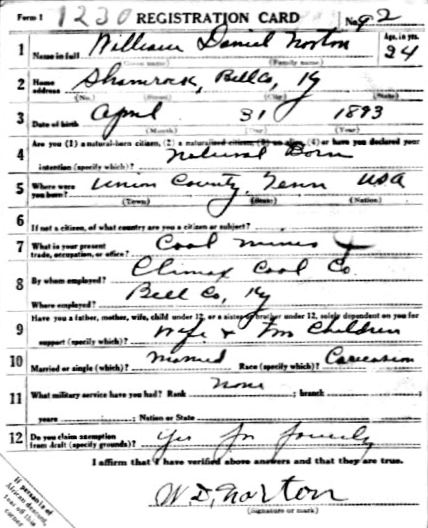 Form 1 1230 REGISTRATION CARD No. 92
1 Name in full William Daniel Norton Age, in yrs. 24
(Given name) (Family name)
2 Home address Shamrock, Bell Co, Ky
(No.) (Street) (City) (State)
3 Date of birth April 31 1893
(Month) (Day) (Year)
4 Are you (1) a natural-born citizen, (2) a naturalized citizen, (3) an alien, (4) or have you declared your
intention (specify which)? Natural Born
5 Where were you born? Union County, Tenn USA
(Town) (State) (Nation)
6 If not a citizen, of what country are you a citizen or subject?
7 What is your present trade, occupation, or office? Coal miner
8 By whom employed? Climax Coal Co.
Where employed? Bell Co, Ky
9 Have you a father, mother, wife, child under 12, or a sister or brother under 12, solely dependent on you for
support (specify which)? Wife & Children
10 Married or single (which)? Married Race (specify which)? Caucasian
11 What military service have you had? Rank None ; branch ;
years ; Nation or State
12 Do you claim exemption from draft (specify grounds)? Yes for family
I affirm that I have verified above answers and that they are true.
W. D. Norton
(Signature or mark)
If person is of
African descent,
tear off this
corner